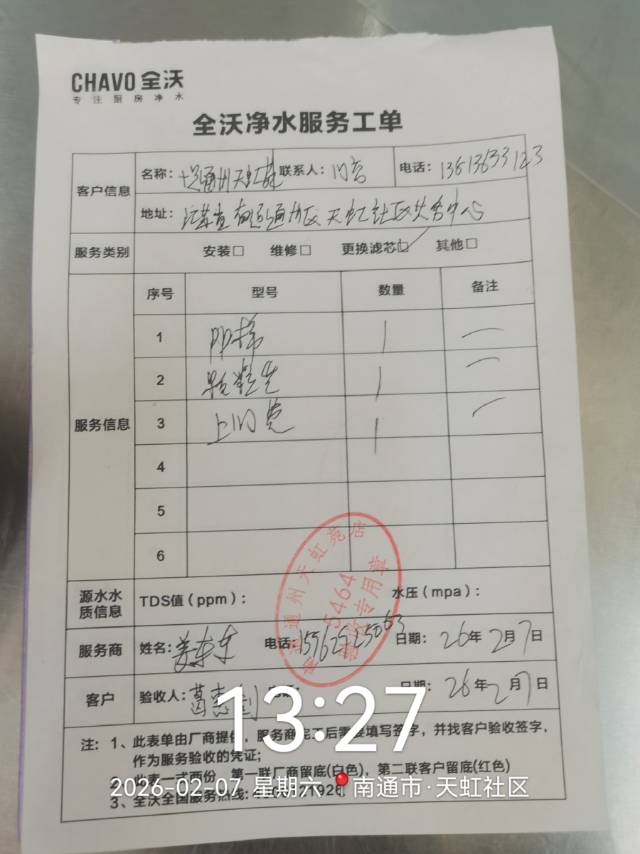 CHAVO 全沃
专注厨房净水
全沃净水服务工单
客户信息
名称: 通州天虹苑 联系人: 门店 电话: 13813633123
地址: 江苏省南通通州区天虹社区服务中心
服务类别 安装□ 维修□ 更换滤芯☑ 其他□
服务信息
序号 型号 数量 备注
1 PP棉 1 —
2 颗粒炭 1 —
3 1 —
4
5
6
源水水质信息 TDS值(ppm): 水压(mpa):
服务商 姓名: 电话: 日期: 26年2月7日
客户 验收人: 日期: 26年2月7日
南通通州天虹苑店
5464
专用章
13:27
注: 1、此表单由厂商提供,服务商完工后需要填写签字,并找客户验收签字,
作为服务验收的凭证;
2、此表一式两份,第一联厂商留底(白色),第二联客户留底(红色)
3、全沃全国服务热线:
2026-02-07 星期六 南通市·天虹社区